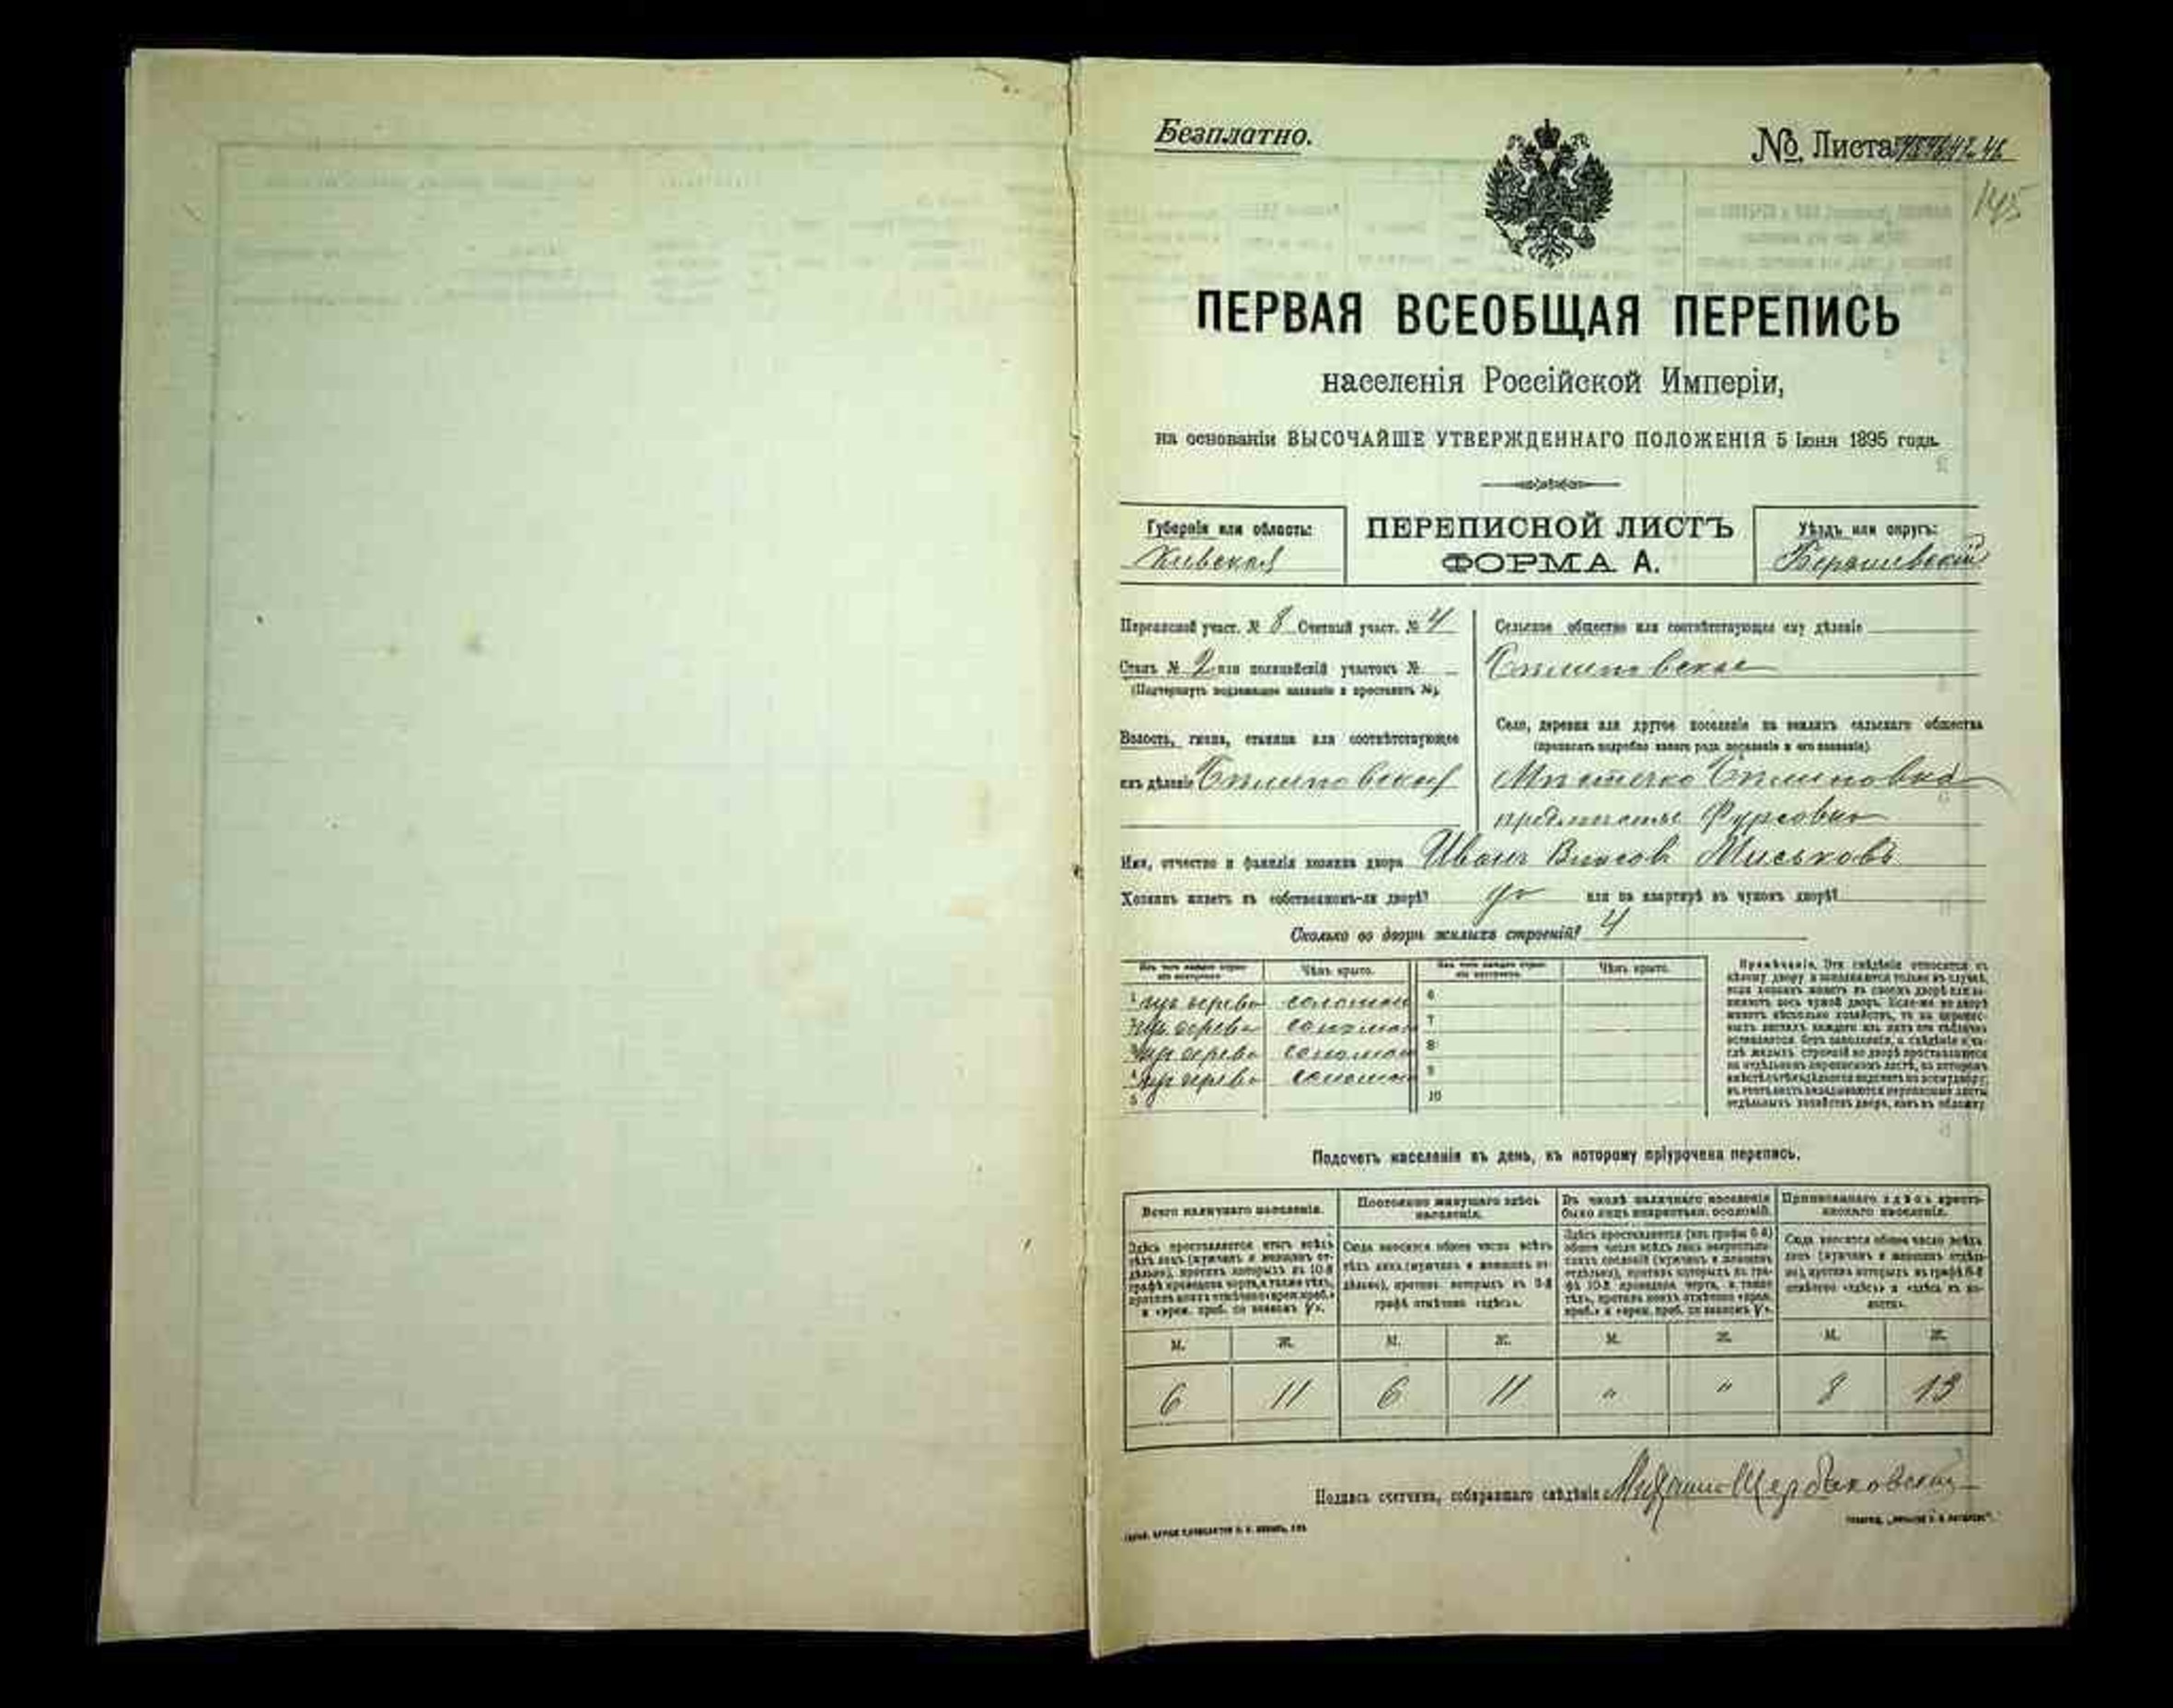 Безплатно.
№ Листа
145
ПЕРВАЯ ВСЕОБЩАЯ ПЕРЕПИСЬ
населенія Россійской Имперіи,
на основаніи ВЫСОЧАЙШЕ УТВЕРЖДЕННАГО ПОЛОЖЕНІЯ 5 Іюня 1895 года.
Губернія или область:
Кіевская
ПЕРЕПИСНОЙ ЛИСТЪ
ФОРМА А.
Уѣздъ или округъ:
Переписной участ. № 8 Счетный участ. № 4
Станъ № 2 или полицейскій участокъ №
(Подчеркнуть надлежащее названіе и проставить №).
Волость, гмина, станица или соотвѣтствующее
имъ дѣленіе
Сельское общество или соотвѣтствующее ему дѣленіе
Село, деревня или другое поселеніе на земляхъ сельскаго общества
(прописать подробно какого рода поселеніе и его названіе).
Мѣстечко
предмѣстье Фурсовка
Имя, отчество и фамилія хозяина двора Иванъ Власовъ Миськовъ
Хозяинъ живетъ въ собственномъ-ли дворѣ? да или на квартирѣ въ чужомъ дворѣ?
Сколько во дворѣ жилыхъ строеній? 4
Изъ чего каждое строеніе построено. Чѣмъ крыто. Изъ чего каждое строеніе построено. Чѣмъ крыто.
1 изъ дерева соломой 6
2 изъ дерева соломой 7
3 изъ дерева соломой 8
4 изъ дерева соломой 9
5 10
Примѣчаніе. Эти свѣдѣнія относятся къ
цѣлому двору и заполняются только въ случаѣ,
если хозяинъ живетъ въ своемъ дворѣ или за-
нимаетъ весь чужой дворъ. Если-же во дворѣ
живетъ нѣсколько хозяйствъ, то на перепис-
ныхъ листахъ каждаго изъ нихъ эта табличка
оставляется безъ заполненія, а свѣдѣнія о чи-
слѣ жилыхъ строеній во дворѣ проставляются
на отдѣльномъ переписномъ листѣ, на которомъ
отдѣльныхъ хозяйствъ двора, какъ въ обложку
Подсчетъ населенія въ день, къ которому пріурочена перепись.
Всего наличнаго населенія.
Постоянно живущаго здѣсь
населенія.
Въ числѣ наличнаго населенія
было лицъ некрестьян. сословій.
Приписаннаго здѣсь кресть-
янскаго населенія.
Здѣсь проставляется итогъ всѣхъ
тѣхъ лицъ (мужчинъ и женщинъ от-
дѣльно), противъ которыхъ въ 10-й
графѣ проведена черта, а также тѣхъ,
противъ коихъ отмѣчено «врем. преб.»
Сюда вносится общее число всѣхъ
тѣхъ лицъ (мужчинъ и женщинъ от-
дѣльно), противъ которыхъ въ 9-й
графѣ отмѣчено «здѣсь».
Здѣсь проставляется (изъ графы 6-й)
общее число всѣхъ лицъ некрестьян-
скихъ сословій (мужчинъ и женщинъ
отдѣльно), противъ которыхъ въ гра-
фѣ 10-й проведена черта, а также
тѣхъ, противъ коихъ отмѣчено «врем.
Сюда вносится общее число всѣхъ
лицъ (мужчинъ и женщинъ отдѣль-
но), противъ которыхъ въ графѣ 8-й
отмѣчено «здѣсь» и «здѣсь въ во-
лости».
М. Ж. М. Ж. М. Ж. М. Ж.
6 11 6 11 " " 8 13
Подпись счетчика, собиравшаго свѣдѣнія Щербаковскій